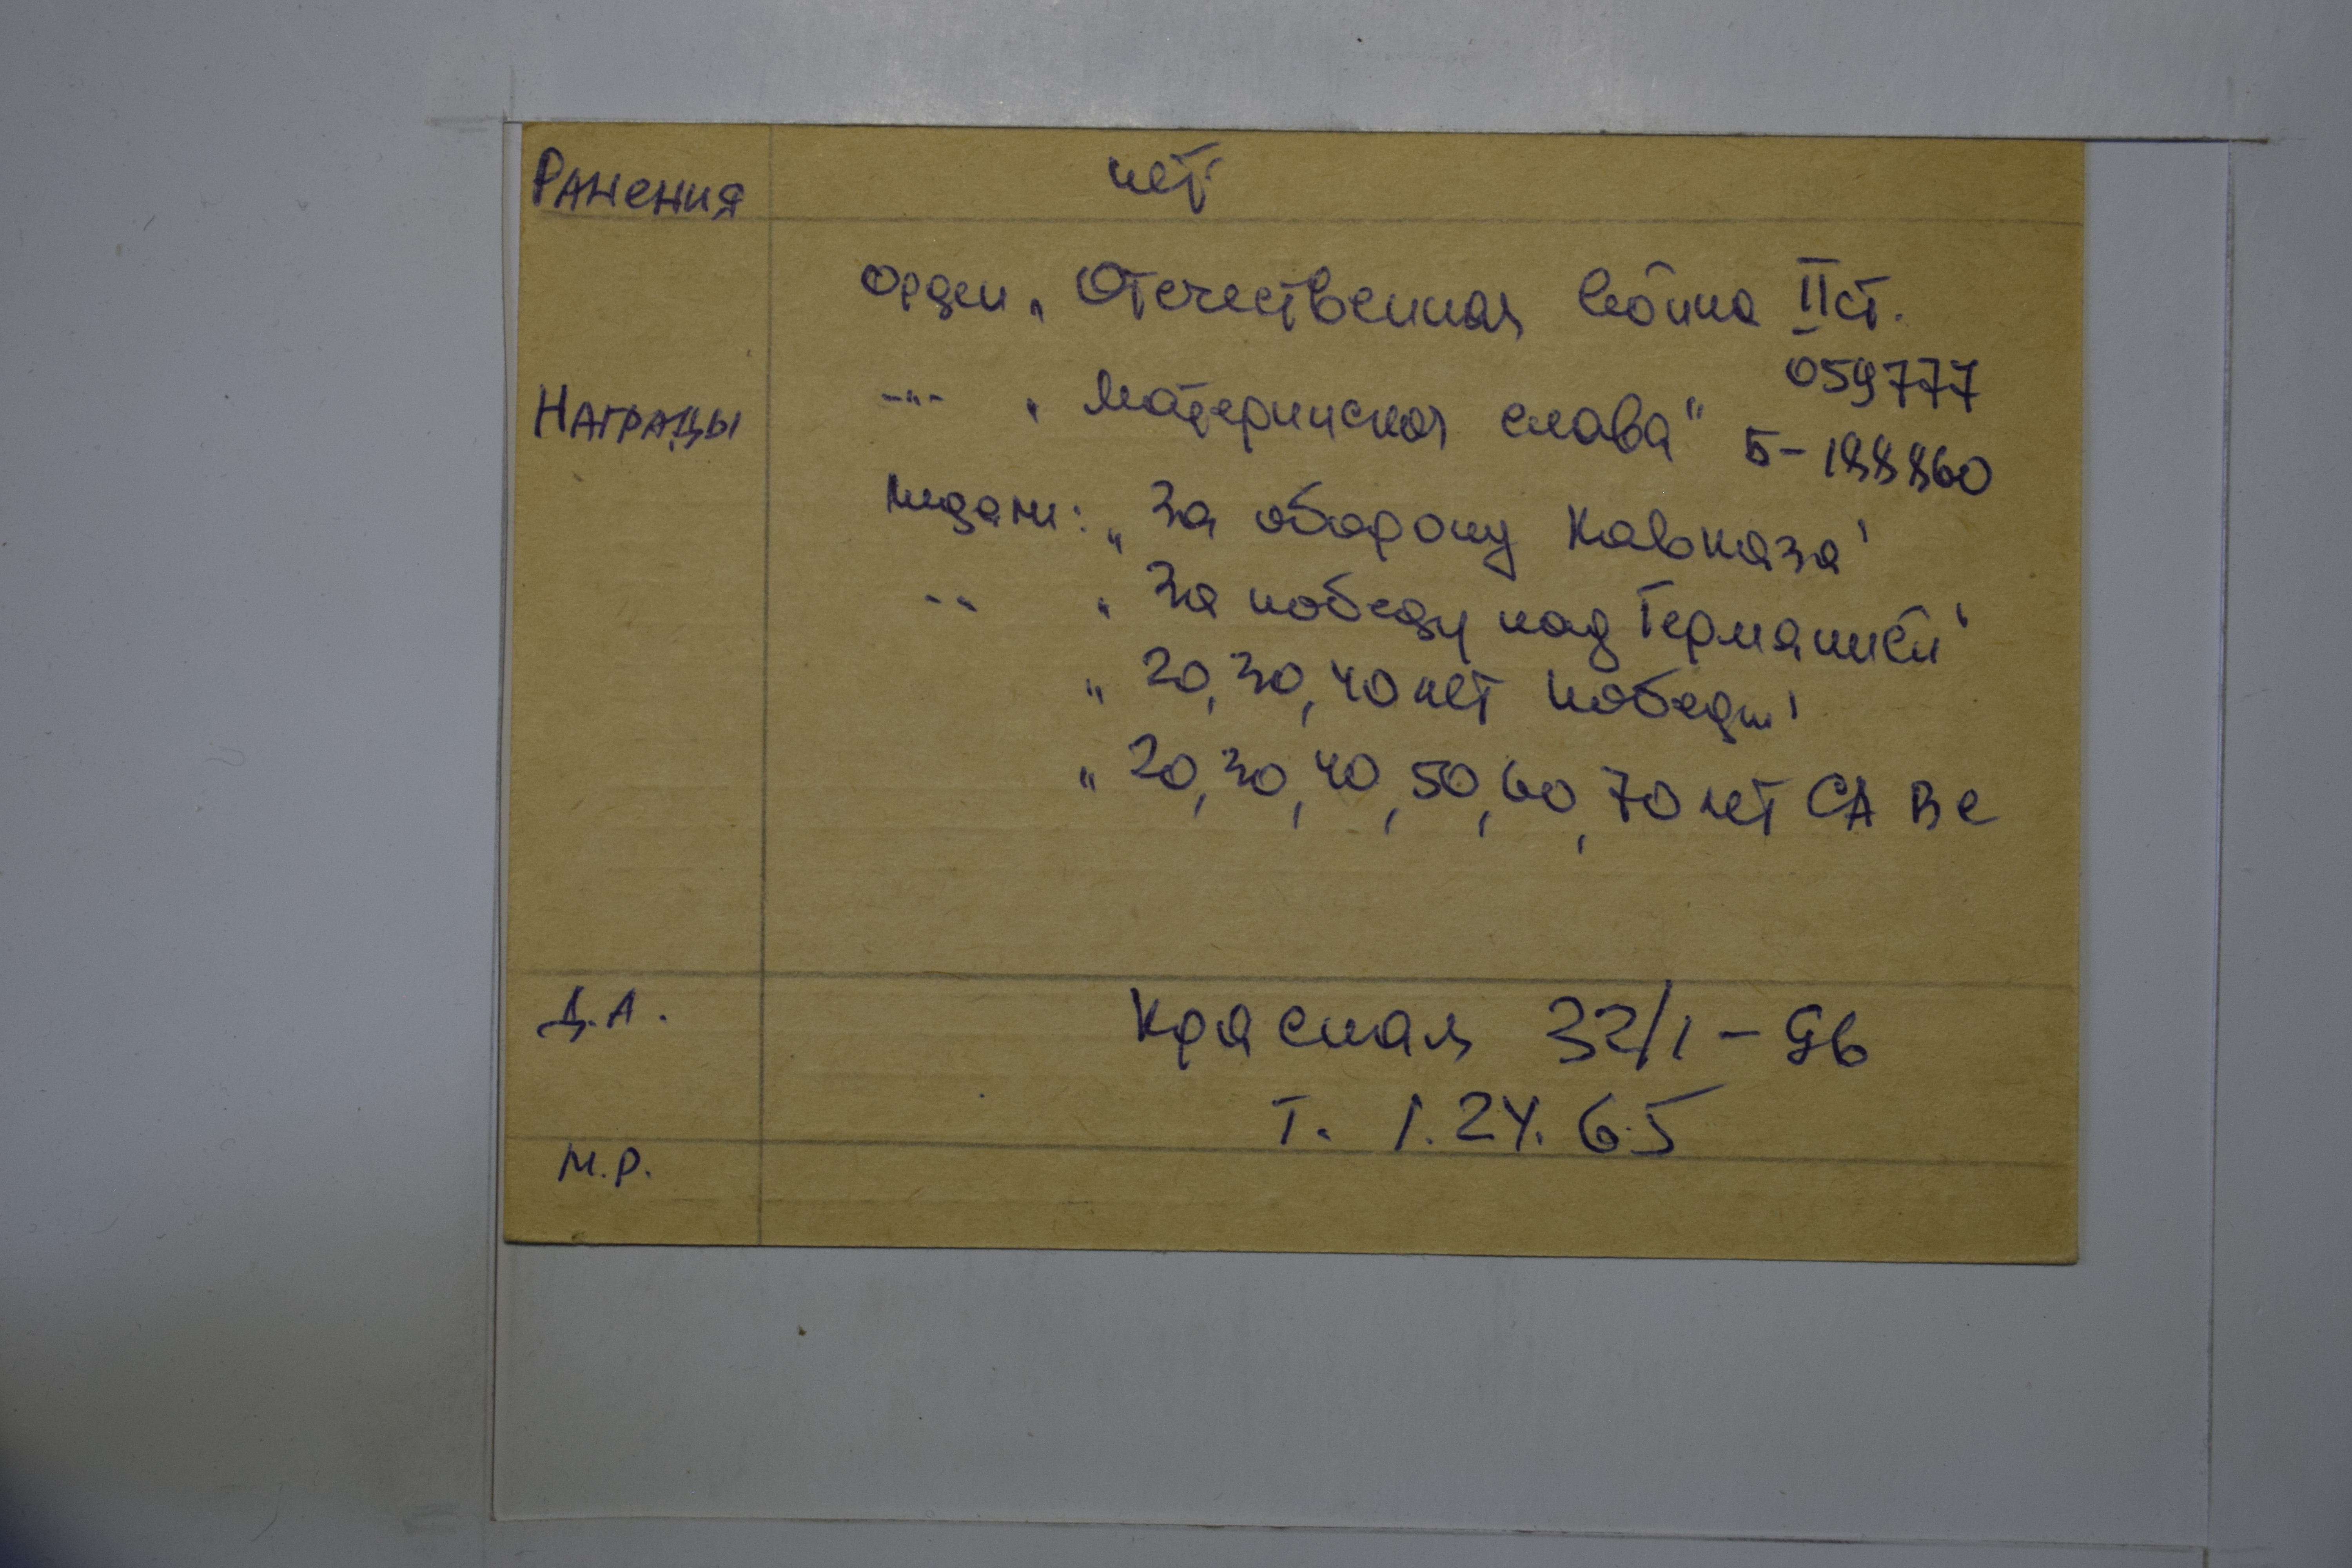 Ранения нет
Орден „Отечественная война II ст.
059777
Награды -"- „Материнская слава" Б-188860
Медали: „За оборону Кавказа"
-"- „За победу над Германией"
„20, 30, 40 лет Победы"
„20, 30, 40, 50, 60, 70 лет СА ВС
Д.А. Красная 32/1 -
т. 1.24.65
М.Р.